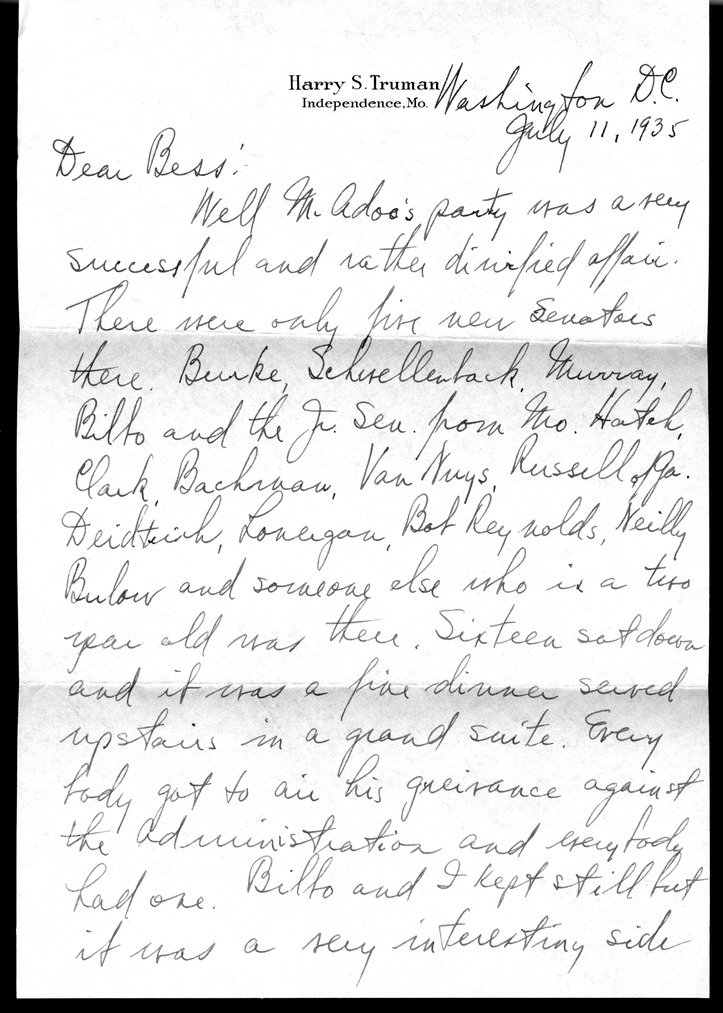 Harry S. Truman
Independence, Mo.
Washington D.C.
July 11, 1935
Dear Bess:
Well McAdoo's party was a very
successful and rather dinified affair.
There were only five new Senators
there. Burke, Schwellenback, Murray,
Bilbo and the Jr. Sen. from Mo. Hatch,
Clark, Bachman, Van Nuys, Russell of Ga.
Deidtrich, Lonergan, Bob Reynolds, Neilly
Bulow and someone else who is a two
year old was there. Sixteen sat down
and it was a fine dinner served
upstairs in a grand suite. Every
body got to air his greivance against
the administration and everybody
had one. Bilbo and I kept still but
it was a very interesting side